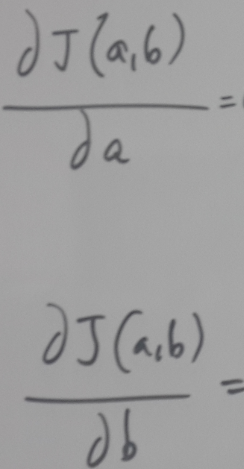 ∂J(a,b)
∂a =
∂J(a,b)
∂b =